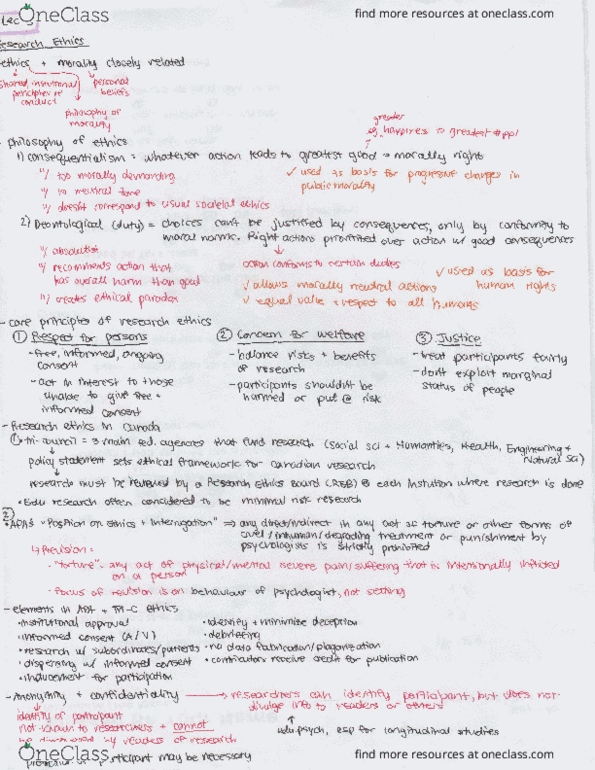 OneClass
find more resources at oneclass.com
Lec
Research Ethics
ethics + morality closely related
shared, institutional principles of conduct
personal beliefs
philosophy of morality
- Philosophy of ethics
greater
eg. happiness to greatest # ppl
1) consequentialism = whatever action leads to greatest good → morally right
too morally demanding
no neutral zone
doesn't correspond to usual societal ethics
✓ used as basis for progressive changes in public morality
2) Deontological (duty) = choices can't be justified by consequences, only by conformity to
moral norms. Right actions prioritized over action w/ good consequences
absolutist
recommends action that
has overall harm than good
creates ethical paradox
action conforms to certain duties
✓ allows morally neutral actions
✓ equal value + respect to all humans
✓ used as basis for
human rights
- core principles of research ethics
① Respect for persons
- free, informed, ongoing
consent
- act in interest to those
unable to give free +
informed consent
② Concern for welfare
- balance risks + benefits
of research
- participants shouldn't be
harmed or put @ risk
③ Justice
- treat participants fairly
- don't exploit marginal
status of people
- Research ethics in Canada
① tri-council = 3 main fed. agencies that fund research (Social sci + Humanities, Health, Engineering +
Natural Sci)
policy statement sets ethical framework for Canadian research
research must be reviewed by a Research Ethics Board (REB) @ each institution where research is done
• Edu research often considered to be minimal risk research
2)
• APA's "Position on ethics + Interrogation" ⇒ any direct/indirect in any act of torture or other forms of
cruel/inhuman/degrading treatment or punishment by
psychologists is strictly prohibited
↳ Revision:
- "torture": any act of physical/mental severe pain/suffering that is intentionally inflicted
on a person
- focus of revision is on behaviour of psychologist, not setting
- elements in APA + TRI-C ethics
• institutional approval
• informed consent (A/V)
• research w/ subordinates/patients
• dispensing w/ informed consent
• inducement for participation
• identify + minimize deception
• debriefing
• no data fabrication/plagiarization
• contributors receive credit for publication
- Anonymity + confidentiality → researchers can identify participant, but does not
divulge info to readers or others
identity of participant
not known to researchers + cannot
be discovered by readers of research
edu psych, esp for longitudinal studies
participant may be necessary
OneClass
find more resources at oneclass.com